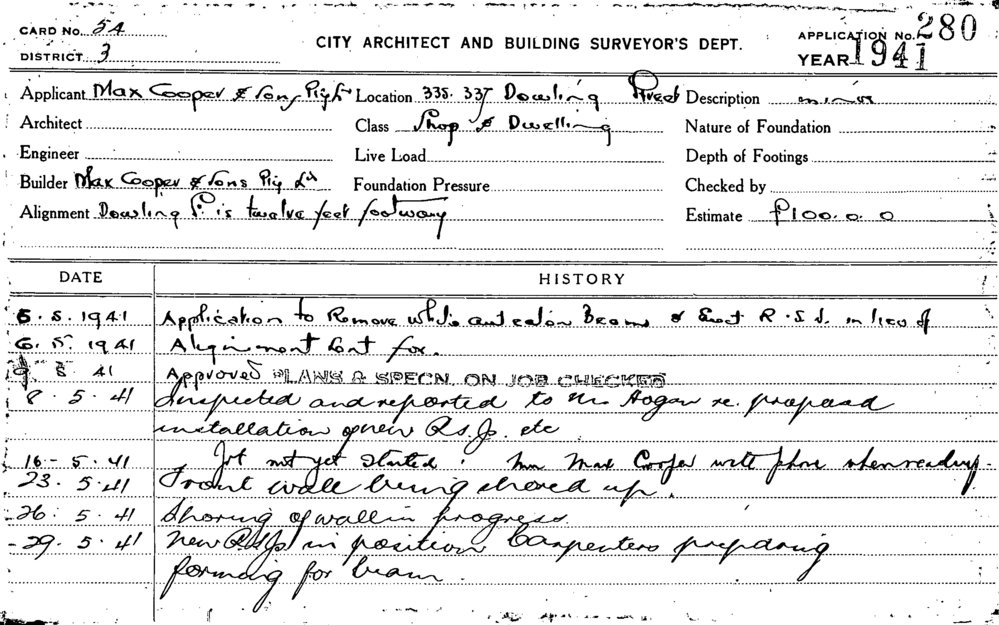 CARD No. 54
DISTRICT 3
CITY ARCHITECT AND BUILDING SURVEYOR'S DEPT.
APPLICATION No. 280
YEAR 1941
Applicant Max Cooper & Sons Location 335. 337 Dowling Street Description minor
Architect Class Shop & Dwelling Nature of Foundation
Engineer Live Load Depth of Footings
Builder Max Cooper & Sons Pty Ld Foundation Pressure Checked by
Alignment Dowling St. is twelve feet footway Estimate £100. 0. 0
DATE HISTORY
5. 5. 1941 Application to Remove Beams & Erect R.S.J. in lieu of
6. 5. 1941 Alignment for.
9 5 41 Approved PLANS & SPECN. ON JOB CHECKED
8. 5. 41 Inspected and reported to Mr Hogan re. proposed
installation of new R.S.Js. etc
16 - 5. 41 Job not yet started. Mr Max Cooper will phone when ready.
23. 5. 41 Front wall being shored up.
26. 5. 41 Shoring of wall in progress.
29. 5. 41 New R.S.Js in position Carpenters preparing
forming for beam.